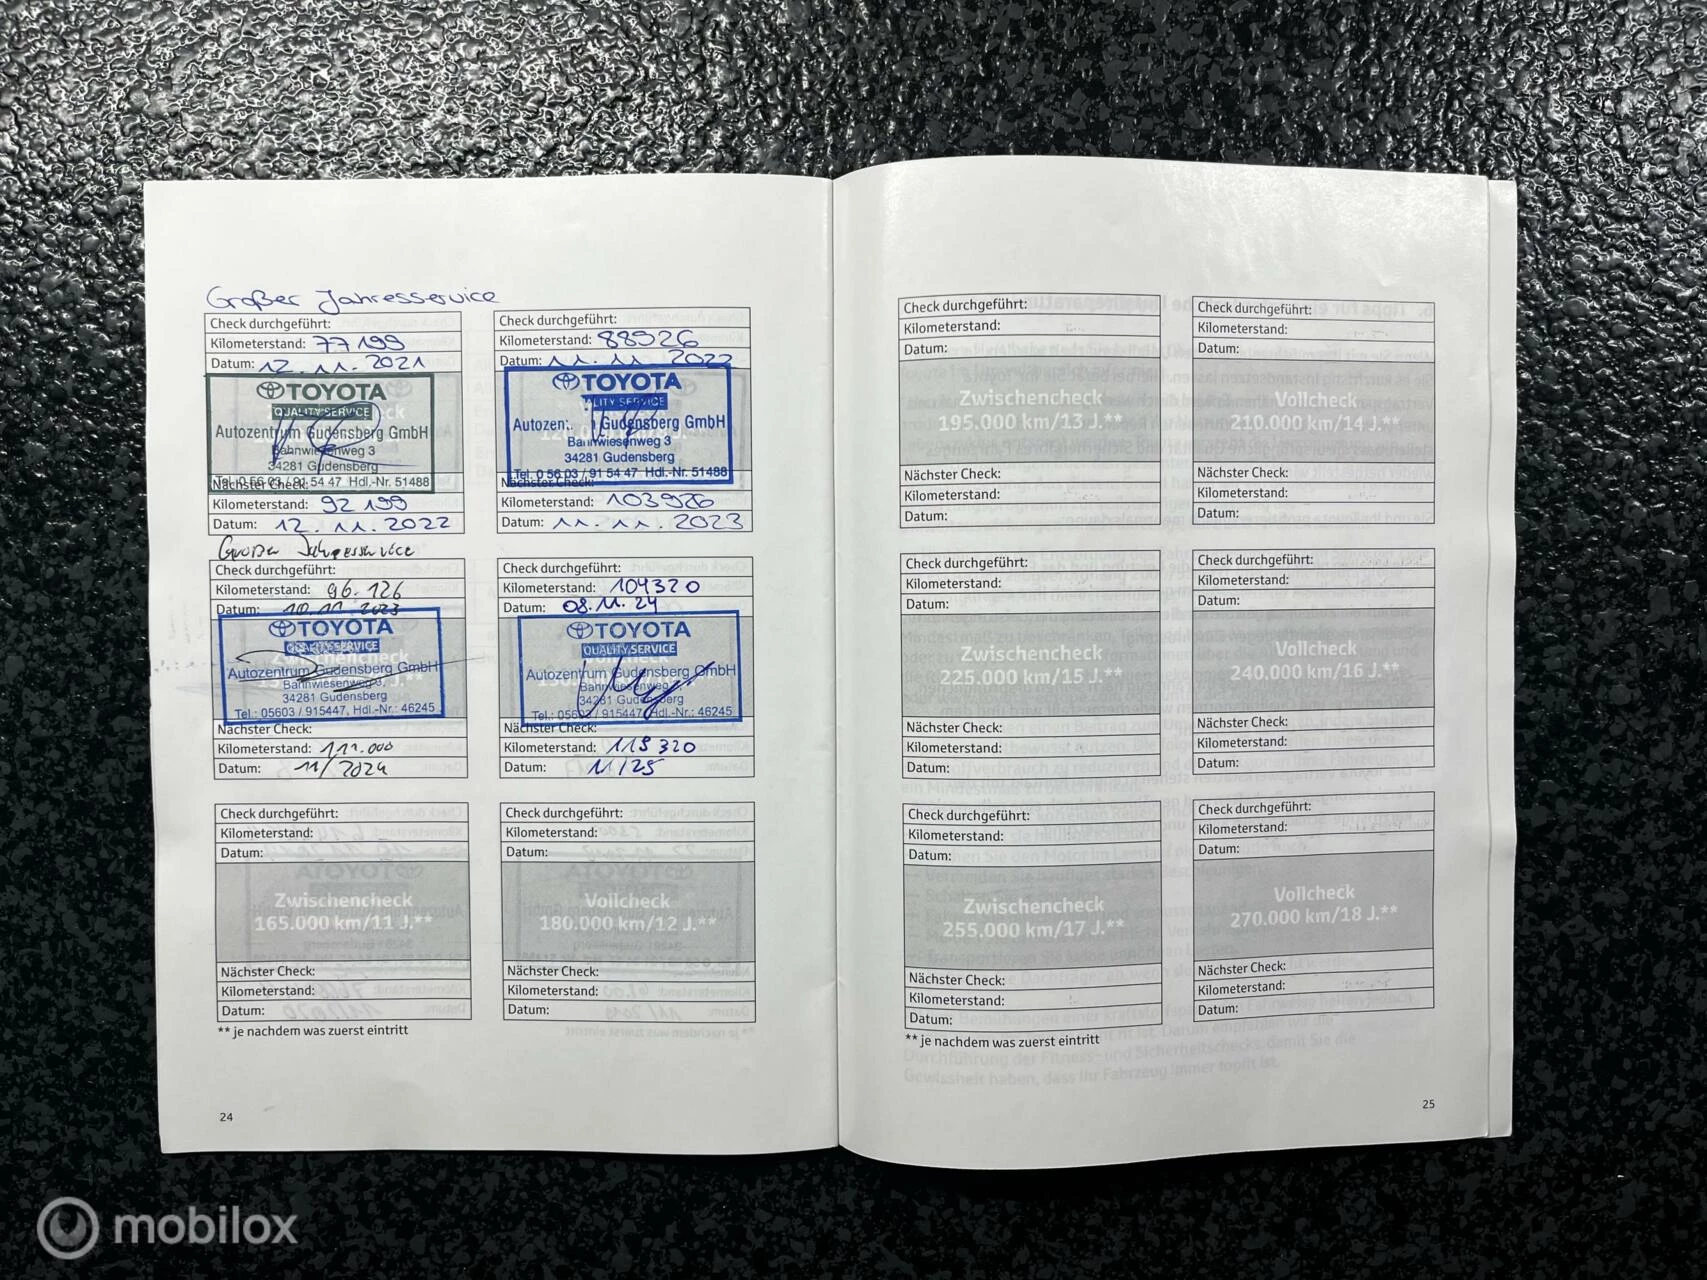 Großer Jahresservice
Check durchgeführt:
Kilometerstand: 77199
Datum: 12.11.2021
TOYOTA
QUALITY SERVICE
Autozentrum Gudensberg GmbH
Bahnwiesenweg 3
34281 Gudensberg
Tel. 0 56 03 / 91 54 47 Hdl.-Nr. 51488
Nächster Check:
Kilometerstand: 92199
Datum: 12.11.2022
Check durchgeführt:
Kilometerstand: 88926
Datum: 11.11.2022
TOYOTA
ALITY SERVICE
Gudensberg GmbH
Bahnwiesenweg 3
34281 Gudensberg
Tel. 0 56 03 / 91 54 47 Hdl.-Nr. 51488
Nächster Check:
Kilometerstand: 103926
Datum: 11.11.2023
Großer Jahresservice
Check durchgeführt:
Kilometerstand: 96.126
Datum: 10.11.2023
TOYOTA
QUALITY SERVICE
Zwischencheck
Autozentrum Gudensberg GmbH
Bahnwiesenweg 3,
34281 Gudensberg
Tel.: 05603 / 915447, Hdl.-Nr.: 46245
Nächster Check:
Kilometerstand: 111.000
Datum: 11/2024
Check durchgeführt:
Kilometerstand: 104320
Datum: 08.11.24
TOYOTA
QUALITY SERVICE
Autozentrum Gudensberg GmbH
Bahnwiesenweg
34281 Gudensberg
Tel.: 05603 / 915447, Hdl.-Nr.: 46245
Nächster Check:
Kilometerstand: 119320
Datum: 11/25
Check durchgeführt:
Kilometerstand:
Datum:
Zwischencheck
165.000 km/11 J.**
Nächster Check:
Kilometerstand:
Datum:
Check durchgeführt:
Kilometerstand:
Datum:
Vollcheck
180.000 km/12 J.**
Nächster Check:
Kilometerstand:
Datum:
** je nachdem was zuerst eintritt
24
Check durchgeführt:
Kilometerstand:
Datum:
Zwischencheck
195.000 km/13 J.**
Nächster Check:
Kilometerstand:
Datum:
Check durchgeführt:
Kilometerstand:
Datum:
Vollcheck
210.000 km/14 J.**
Nächster Check:
Kilometerstand:
Datum:
Check durchgeführt:
Kilometerstand:
Datum:
Zwischencheck
225.000 km/15 J.**
Nächster Check:
Kilometerstand:
Datum:
Check durchgeführt:
Kilometerstand:
Datum:
Vollcheck
240.000 km/16 J.**
Nächster Check:
Kilometerstand:
Datum:
Check durchgeführt:
Kilometerstand:
Datum:
Zwischencheck
255.000 km/17 J.**
Nächster Check:
Kilometerstand:
Datum:
Check durchgeführt:
Kilometerstand:
Datum:
Vollcheck
270.000 km/18 J.**
Nächster Check:
Kilometerstand:
Datum:
** je nachdem was zuerst eintritt
25
mobilox